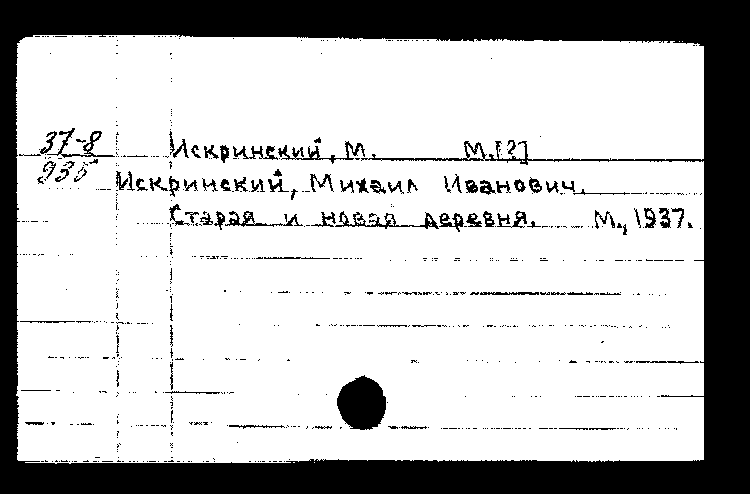 37-8
935
Искринский, М. М.[?]
Искринский, Михаил Иванович.
Старая и новая деревня. М., 1937.